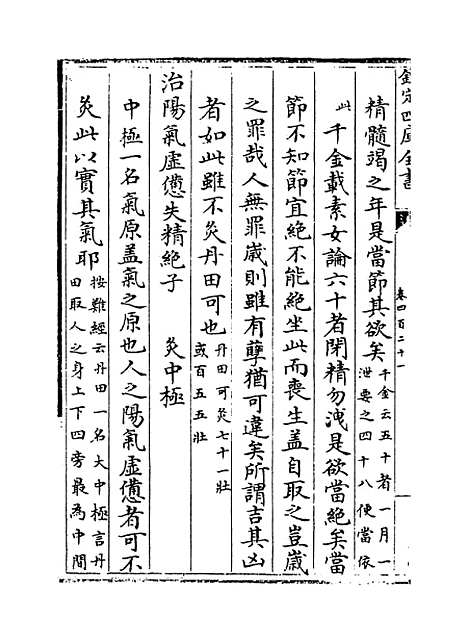 欽定四庫全書
卷四百二十一
精髓竭之年是當節其欲矣千金云五十者一月一
泄要之四十八便當依
此千金載素女論六十者閉精勿洩是欲當絶矣當
節不知節宜絶不能絶坐此而喪生盖自取之豈嵗
之罪哉人無罪嵗則雖有孽猶可違矣所謂吉其凶
者如此雖不灸丹田可也丹田可灸七十一壯
或百五五壯
治陽氣虛憊失精絶子 灸中極
中極一名氣原盖氣之原也人之陽氣虛憊者可不
灸此以實其氣耶按難經云丹田一名大中極言丹
田取人之身上下四旁最為中間